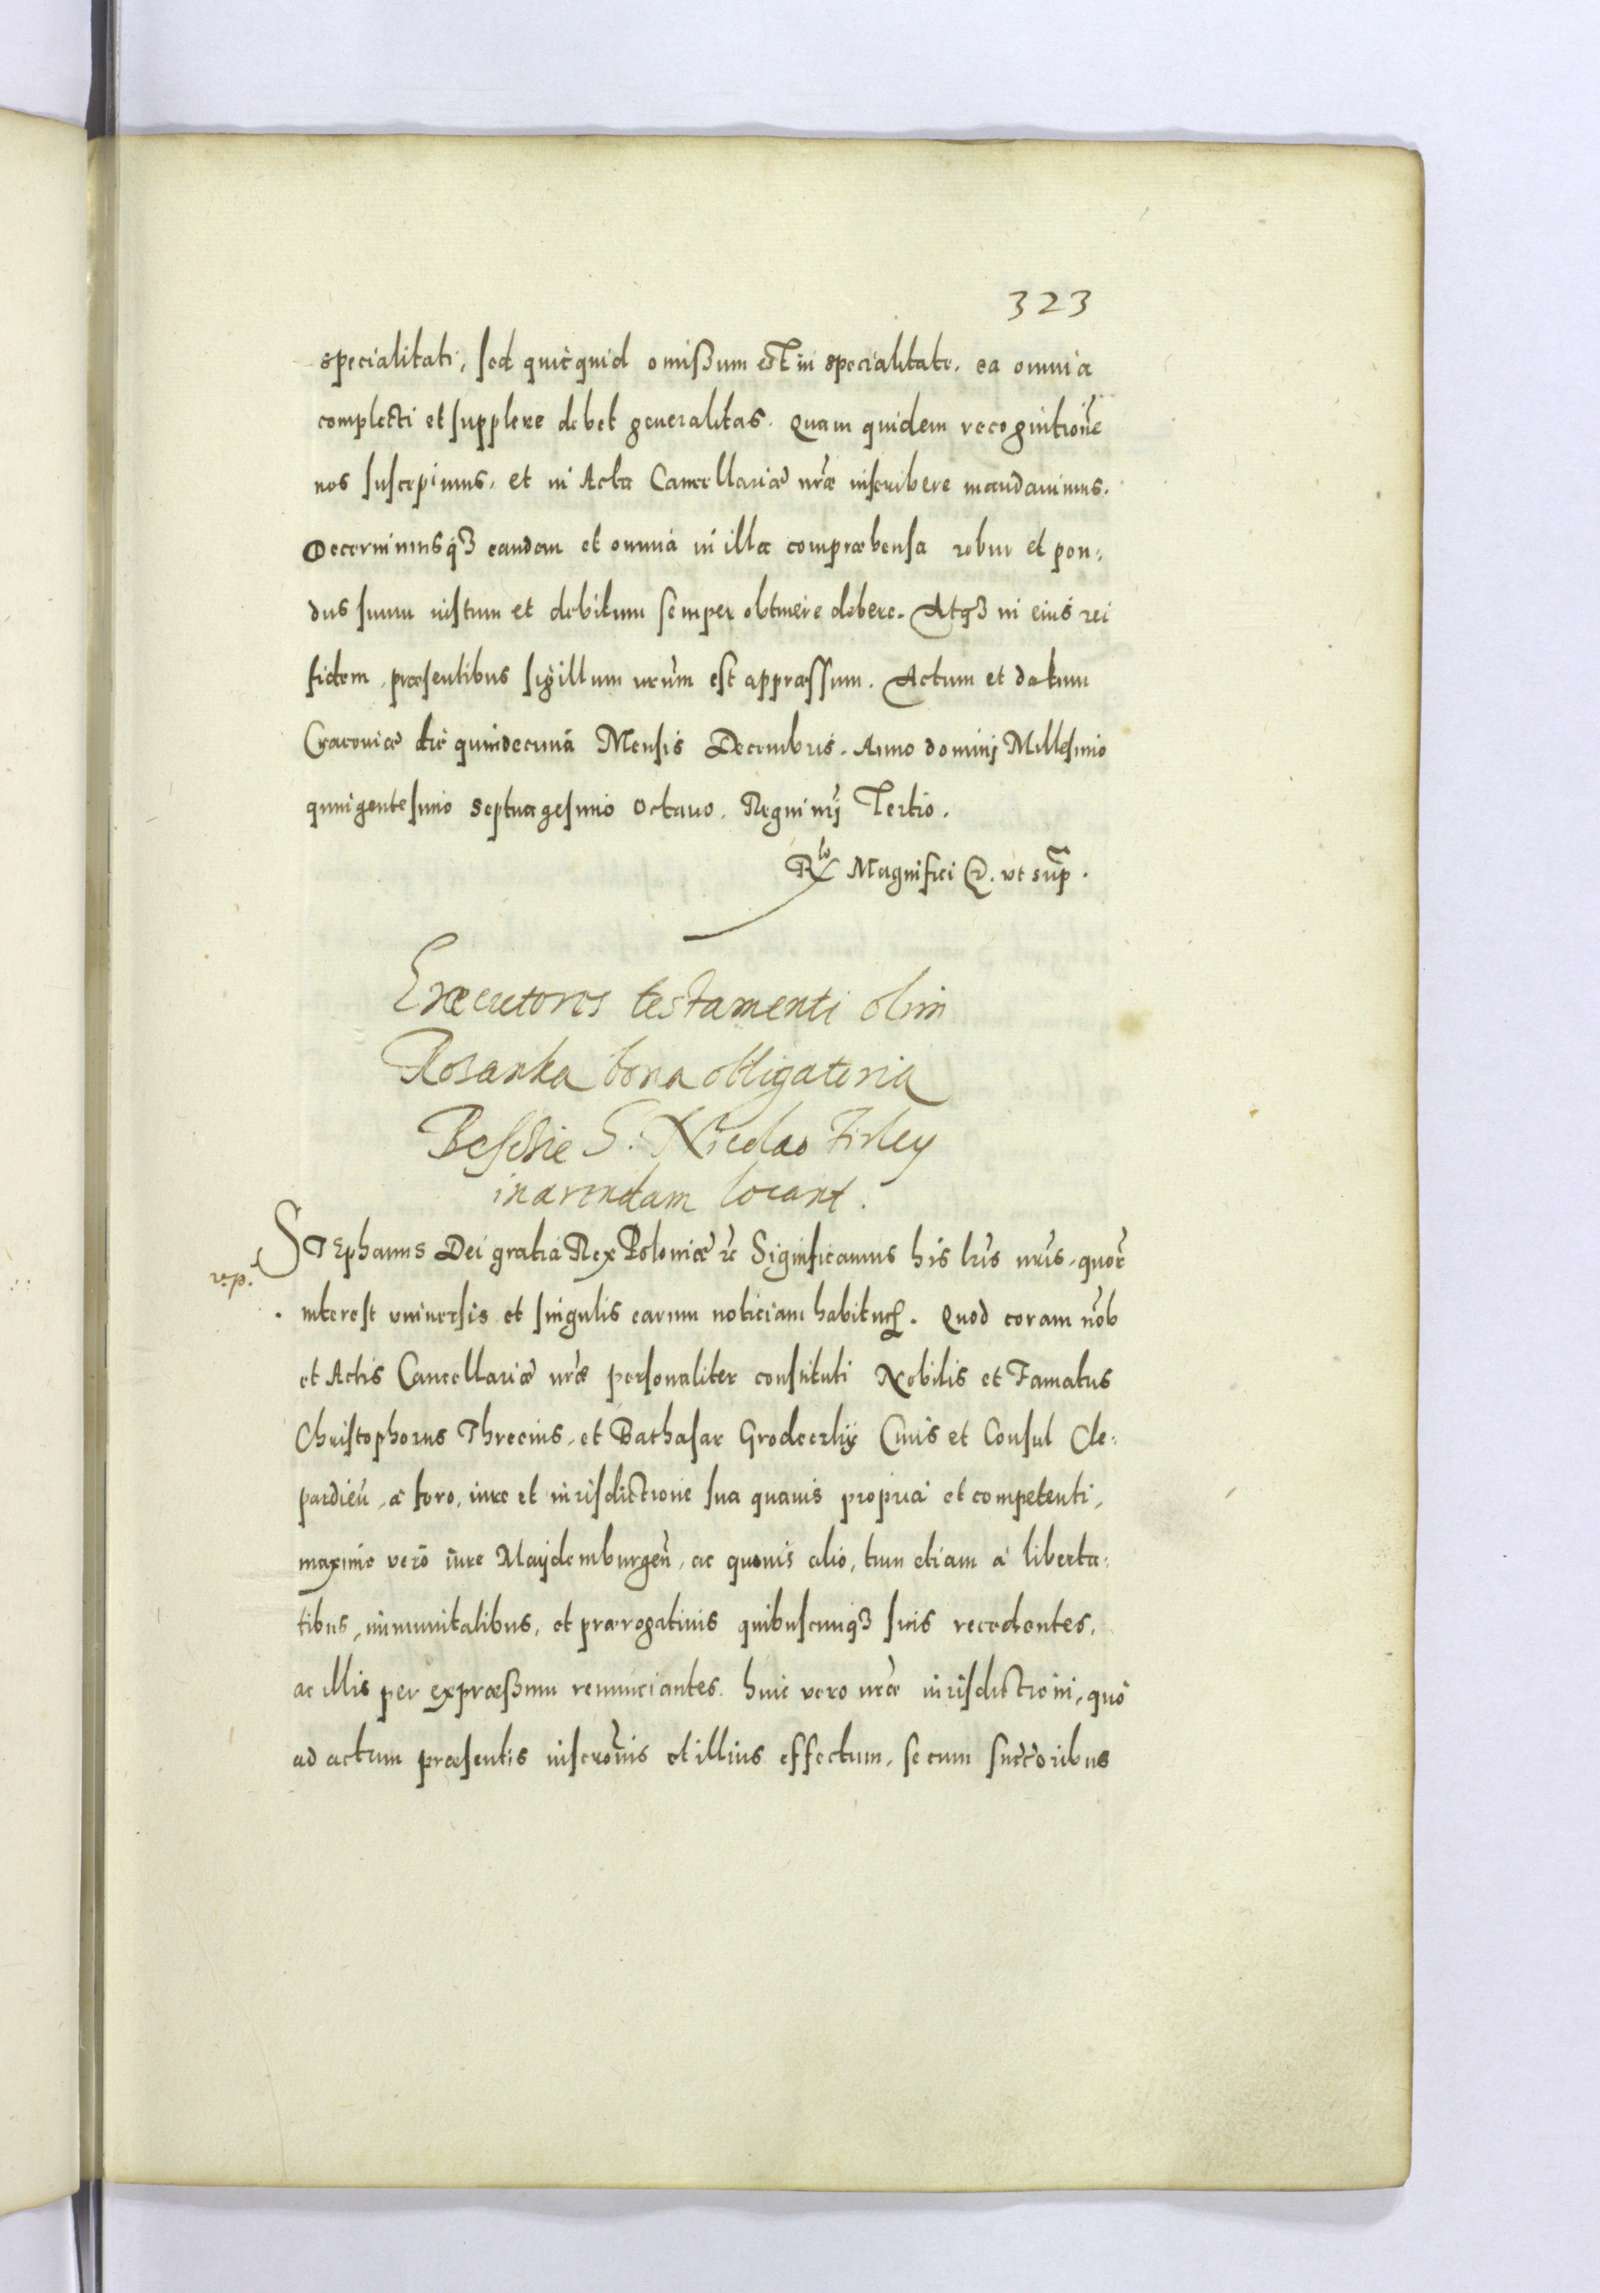 323
specialitati, sed quicquid omißum est in specialitate, ea omnia
complecti et supplere debet generalitas. Quam quidem recognitione͂
nos suscepimus, et in Acta Cancellariæ nr̃æ inscribere mandauimus.
Decernimusq3 eandem et omnia in illa compræhensa robur et pon:
dus suum iustum et debitum semper obtinere debere. Atq3 in eius rei
fidem, præsentibus sigillum nr̃um est appræssum. Actum et datum
Cracoviæ die quindecima Mensis Decembris. Anno dominj Millesimo
quingentesimo septuagesimo octauo. Regni nrĩ Tertio.
Rlo Magnifici &. ut sup̃.
Exæcutores testamenti olim
Rozanka bona obligatoria
G. Nicolao Firley
in arendam locant.
Stephanus Dei gratia Rex Poloniæ &c Significamus his lr̃is nr̃is, quor̃
r.p.
interest vniuersis et singulis earum noticiam habitur. Quod coram nob̃
et Actis Cancellariæ nr̃æ personaliter constituti Nobilis et Famatus
Christophorus Threcius, et Bathasar Ciuis et Consul Cle:
pardien̄, a foro, iure et iurisdictione sua quauis propria et competenti,
maxime vero iure Maijdemburgen̄, ac quouis alio, tum etiam a liberta:
tibus, immunitatibus, et prærogatiuis quibuscunq3 suis recedentes,
ac illis per expræßum renunciantes. huic vero nr̃æ iurisdictioni, quo
ad actum præsentis inscr̃onis et illius effectum, se cum succ̃oribus